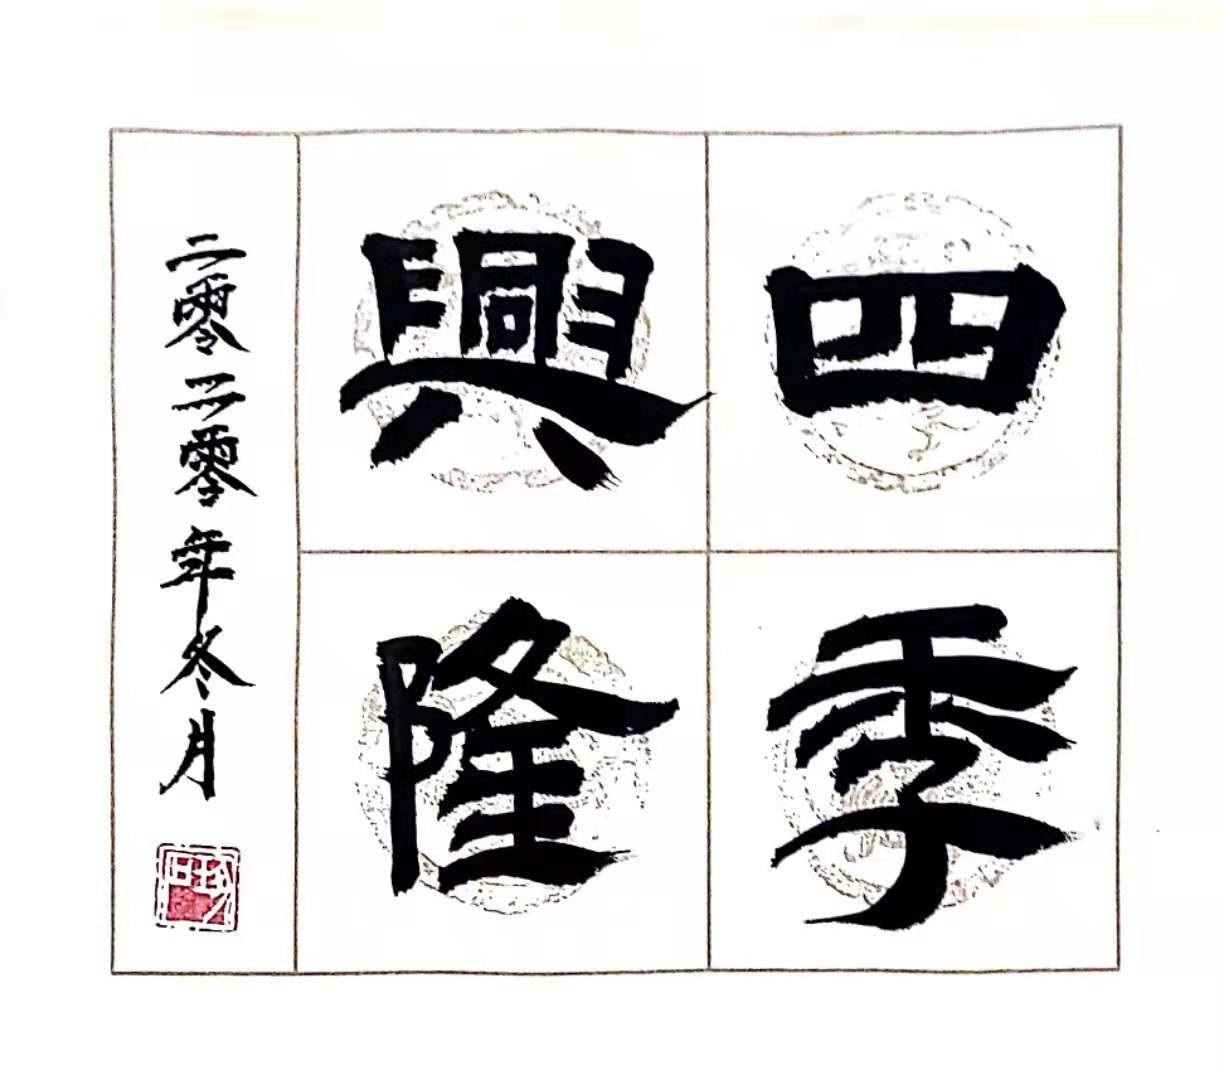 四季
興隆
二零二零年冬月